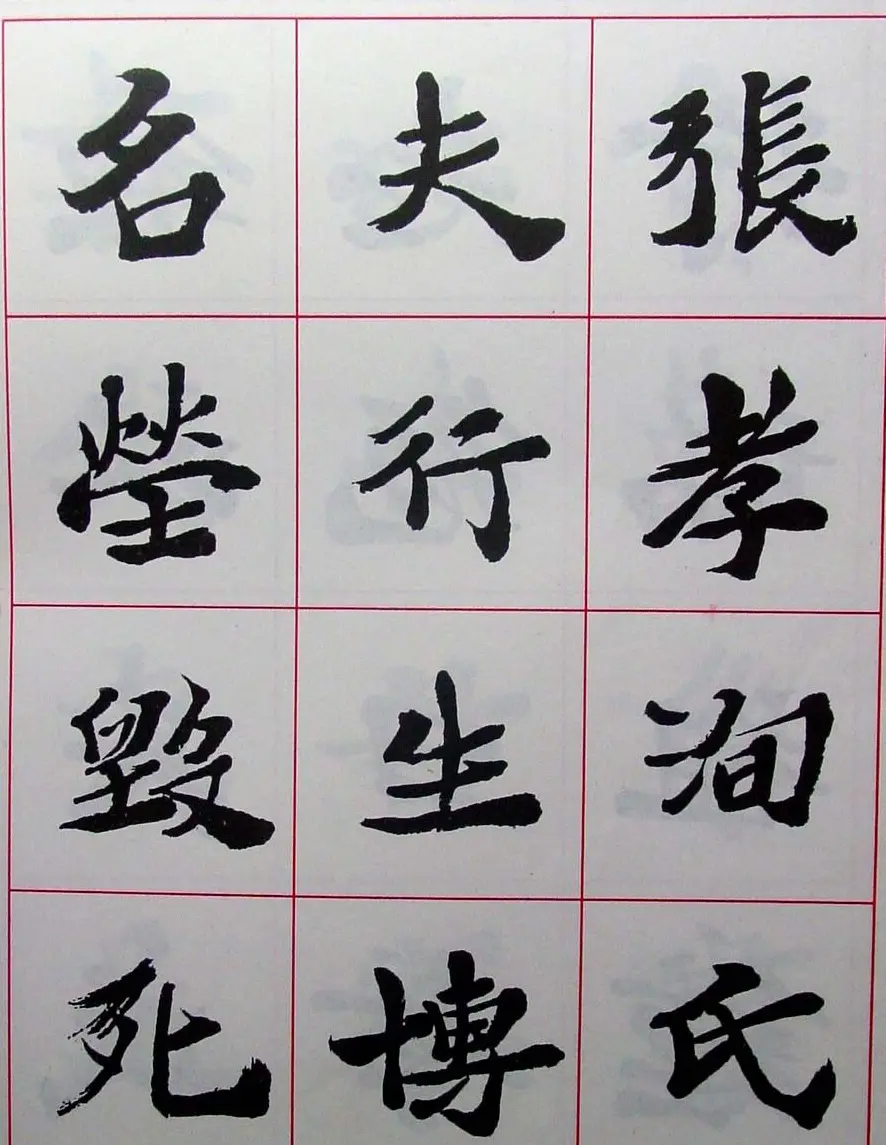 張孝洵氏
夫行生博
名塋毀死